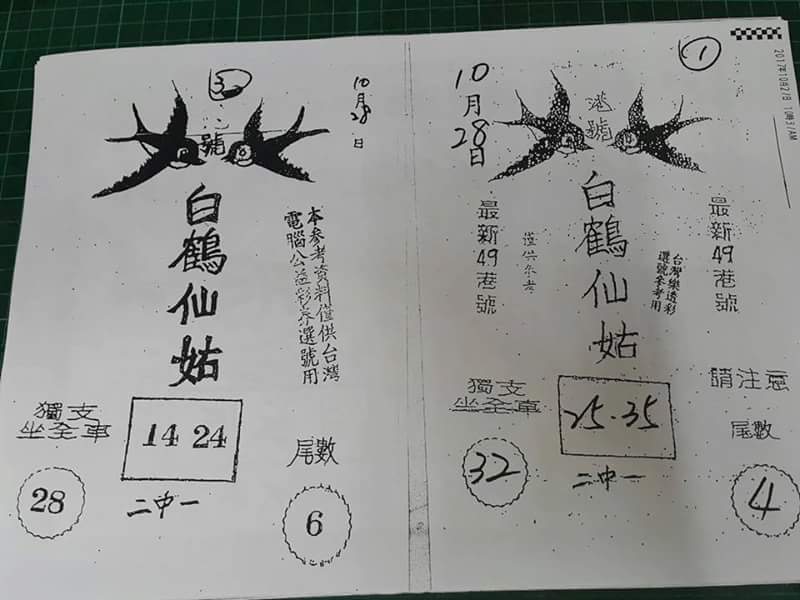 3
10月28日
號
白鶴仙姑
本參考資料僅供台灣
電腦公益彩券選號用
獨支
坐全車
14 24
尾數
28
二中一
6
1
2017年10月27日
10月28日
港號
白鶴仙姑
最新49港號
最新49港號
僅供參考
台灣樂透彩
選號參考用
請注意
獨支
坐全車
25.35
尾數
32
二中一
4